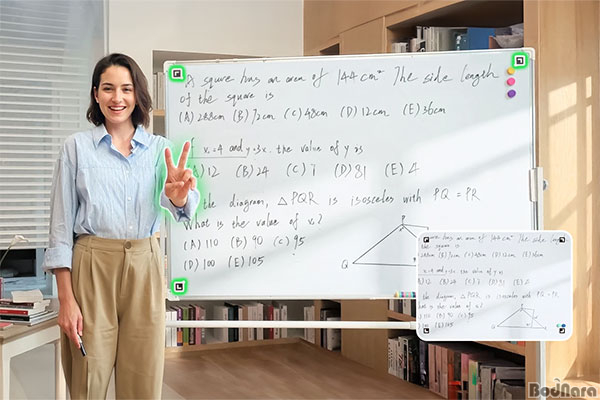 A square has an area of 144 cm² The side length
of the square is
(A) 288cm (B) 72cm (C) 48cm (D) 12cm (E) 36cm
x=4 and y=3x. the value of y is
A) 12 (B) 24 (C) 7 (D) 81 (E) 4
the diagram, △PQR is isosceles with PQ = PR
What is the value of x?
(A) 110 (B) 90 (C) 95
(D) 100 (E) 105
P
Q
BodNara